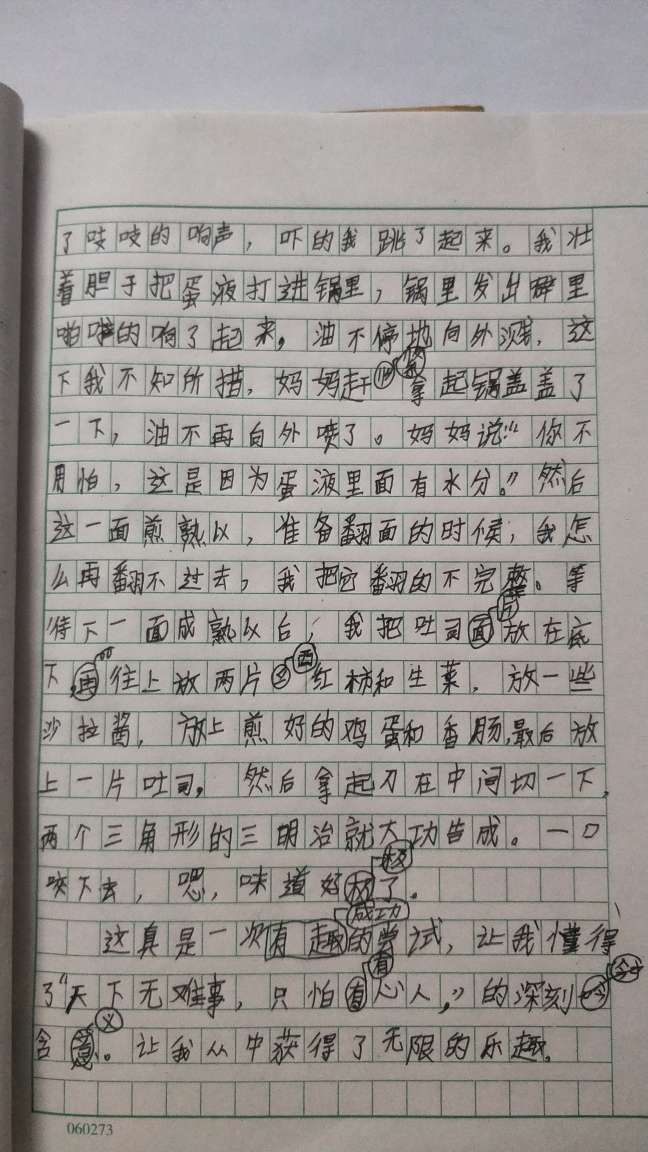 了吱吱的响声，吓的我跳了起来。我壮
着胆子把蛋液打进锅里，锅里发出噼里
啪啦的响了起来。油不停地向外溅，这
下我不知所措，妈妈赶紧拿起锅盖盖了
一下，油不再向外喷了。妈妈说“你不
用怕，这是因为蛋液里面有水分。”然后
这一面煎熟以，准备翻面的时候，我怎
么再翻不过去，我把它翻的不完整。等
待下一面成熟以后，我把吐司片放在底
下，再往上放两片西红柿和生菜，放一些
沙拉酱，放上煎好的鸡蛋和香肠，最后放
上一片吐司。然后拿起刀在中间切一下，
两个三角形的三明治就大功告成。一口
咬下去，嗯，味道好极了。
成功
这真是一次有趣的尝试，让我懂得
了“天下无难事，只怕有心人，”的深刻
含义。让我从中获得了无限的乐趣。
060273